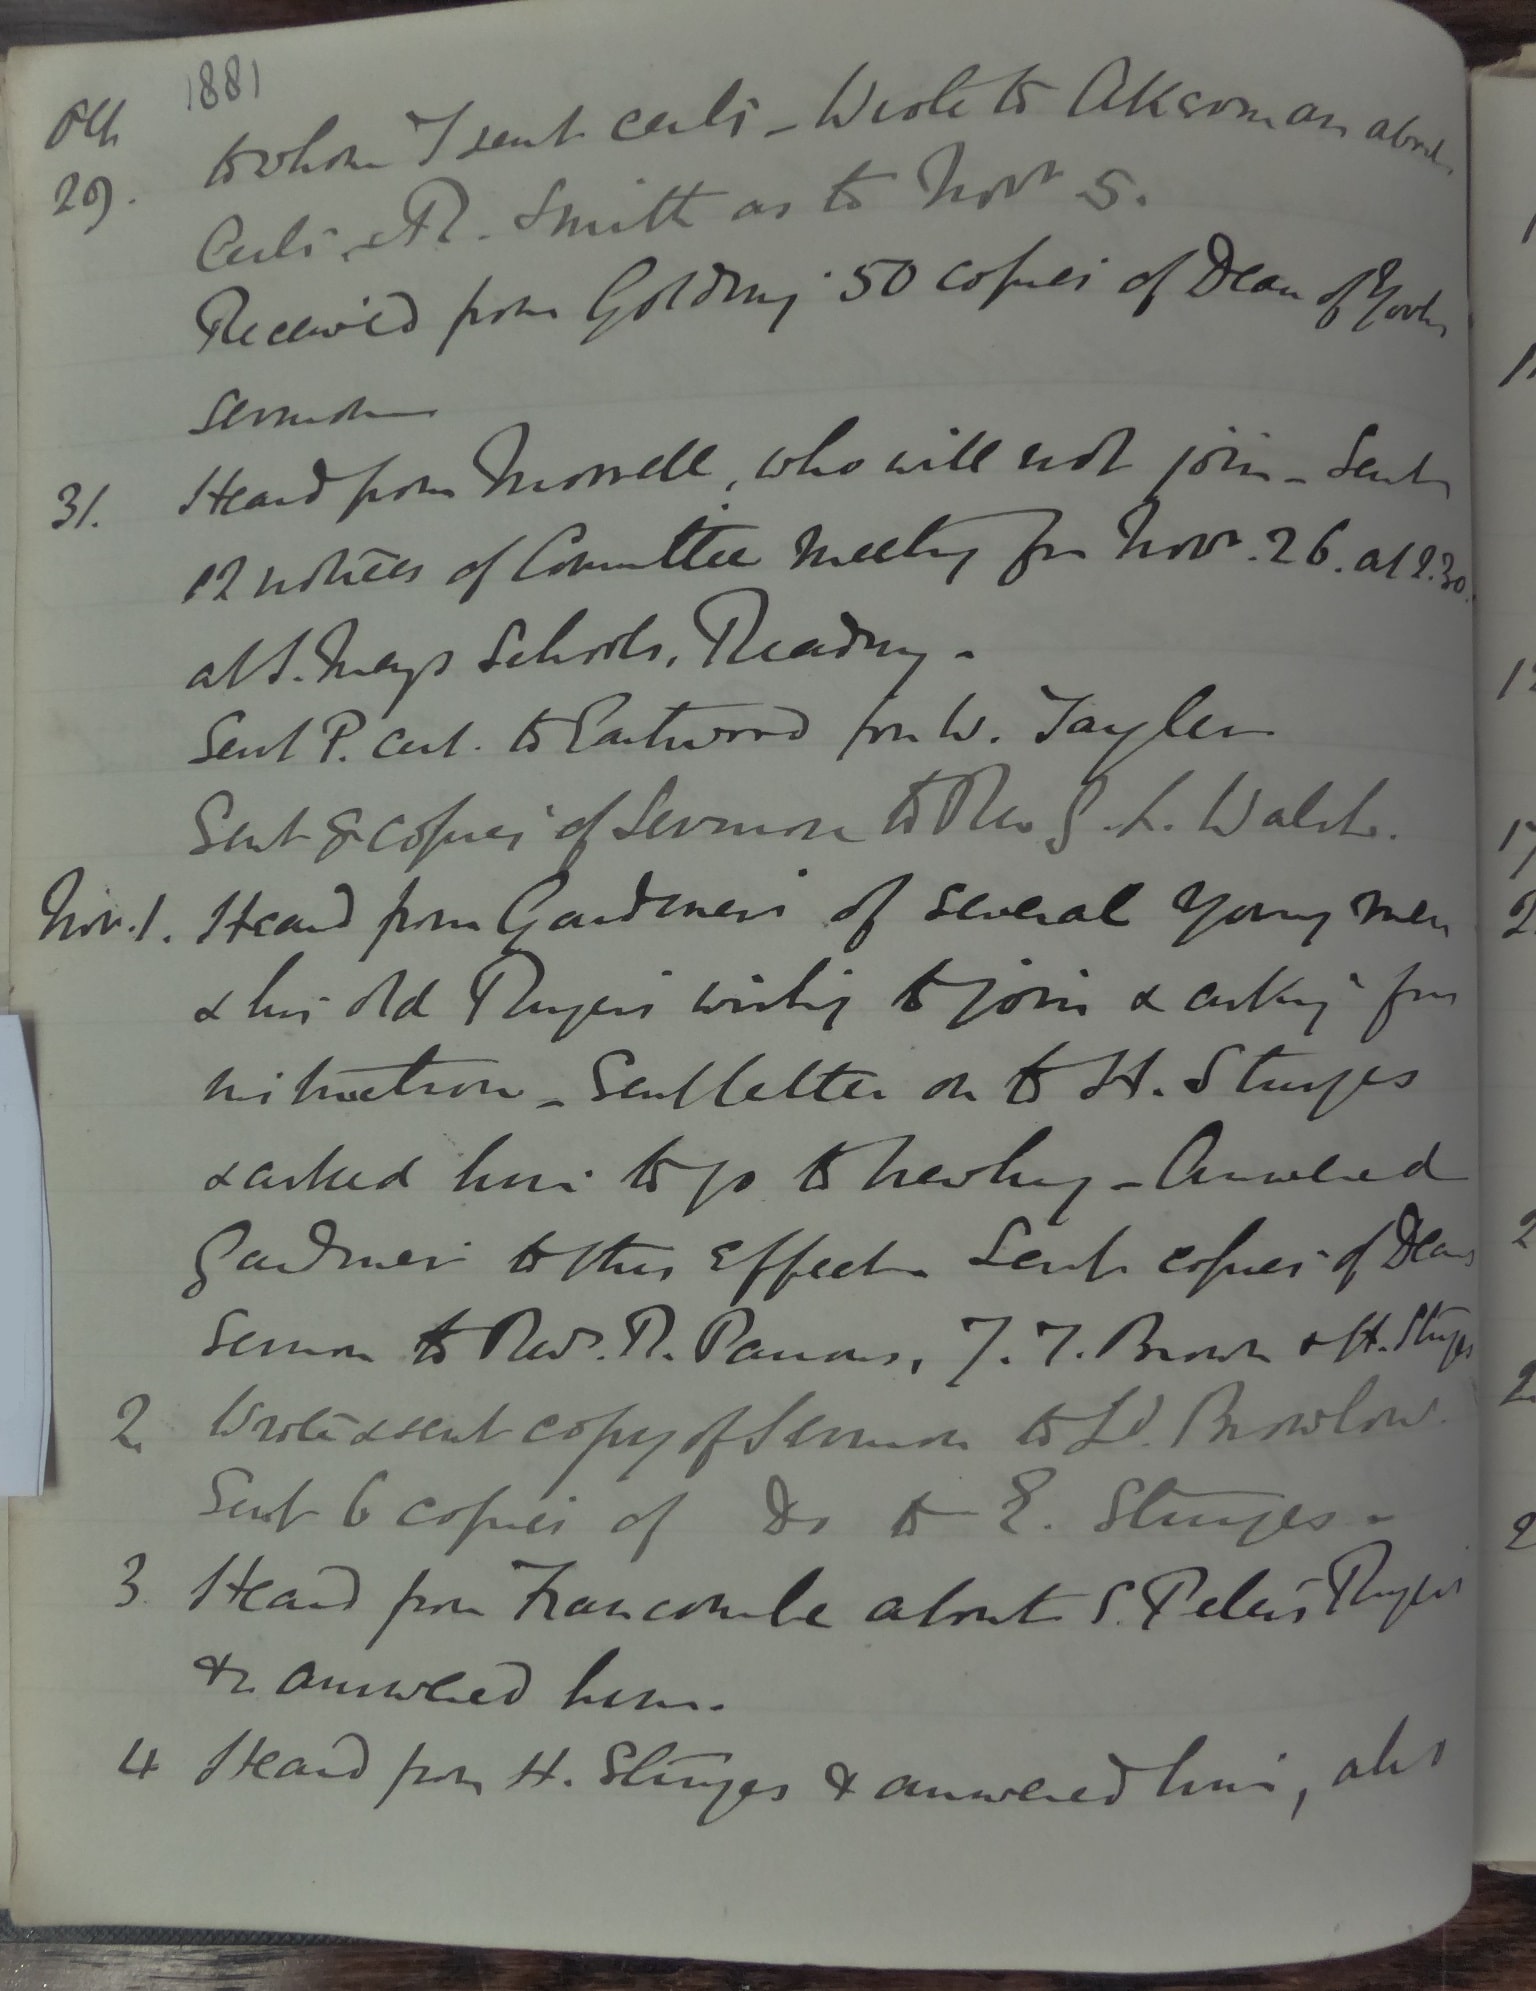 1881
Oct 29. to whom I sent certs - Wrote to Akerman about
Certs & R. Smith as to Novr 5.
Received from Golding 50 copies of Dean of York's
sermon
31. Heard from Morrell, who will not join - Sent
12 notices of Committee Meeting for Novr. 26. at 2.30.
at S. Mary's Schools, Reading -
Sent P. cert. to Eastwood for W. Tayler
Sent 8 copies of Sermon to Rev G. L. Walsh.
Nov. 1. Heard from Gardiner of several Young Men
& his old Ringers wishing to join & asking for
instruction - Sent letter on to H. Sturges
& asked him to go to Newbury - Answered
Gardiner to this effect - Sent copies of Dean's
Sermon to Revs. R. Parsons, J. T. Brown & H. Sturges
2. Wrote & sent copy of Sermon to Ld. Brownlow.
Sent 6 copies of Do to E. Sturges -
3. Heard from Francombe about S. Peter's Ringers
& answered him.
4 Heard from H. Sturges & answered him, also